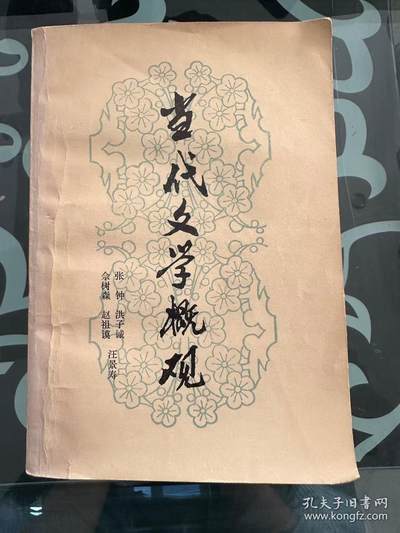 当代文学概观
张钟 洪子诚
佘树森 赵祖谟
汪景寿
孔夫子旧书网
www.kongfz.com